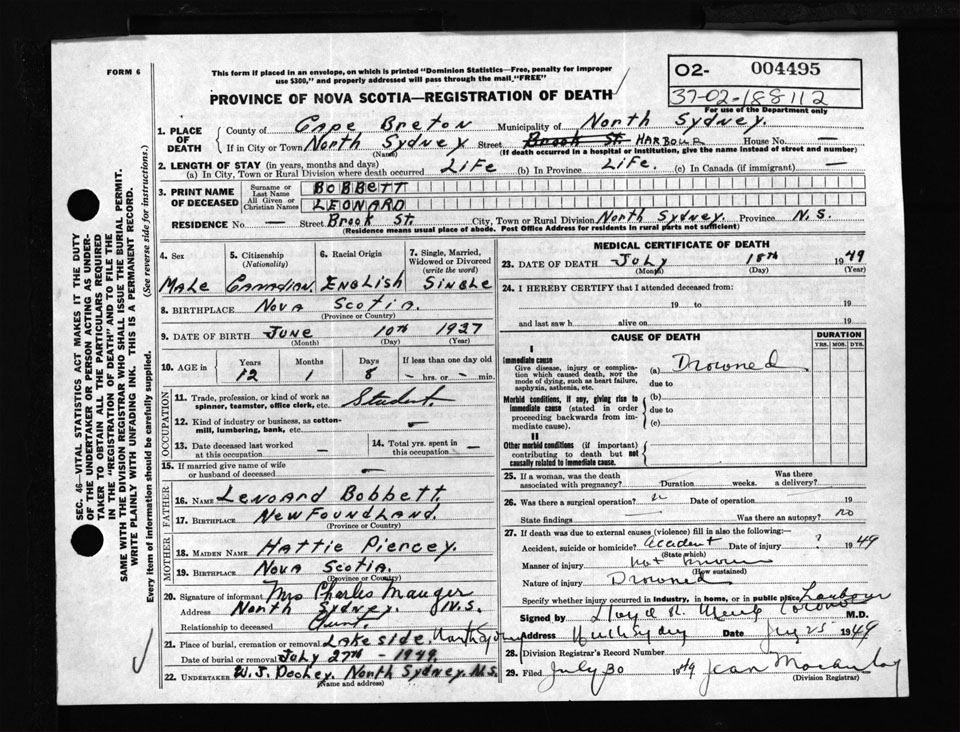 FORM 6
This form if placed in an envelope, on which is printed "Dominion Statistics—Free, penalty for improper
use $300," and properly addressed will pass through the mail, "FREE"
02- 004495
37-02-188112
For use of the Department only
PROVINCE OF NOVA SCOTIA—REGISTRATION OF DEATH
1. PLACE OF DEATH
County of Cape Breton Municipality of North Sydney.
If in City or Town North Sydney Street Brook St HARBOUR House No. —
(Name) (If death occurred in a hospital or institution, give the name instead of street and number)
2. LENGTH OF STAY (in years, months and days)
(a) In City, Town or Rural Division where death occurred Life (b) In Province Life. (c) In Canada (if immigrant) —
3. PRINT NAME OF DECEASED
Surname or Last Name BOBBETT
All Given or Christian Names LEONARD
RESIDENCE No — Street Brook St. City, Town or Rural Division North Sydney. Province N.S.
(Residence means usual place of abode. Post Office Address for residents in rural parts not sufficient)
4. Sex Male
5. Citizenship (Nationality) Canadian.
6. Racial Origin English
7. Single, Married, Widowed or Divorced (write the word) Single
8. BIRTHPLACE Nova Scotia.
(Province or Country)
9. DATE OF BIRTH June 10th 1937
(Month) (Day) (Year)
10. AGE in Years Months Days If less than one day old
12 1 8 — hrs. or — min.
OCCUPATION
11. Trade, profession, or kind of work as
spinner, teamster, office clerk, etc. Student.
12. Kind of industry or business, as cotton-
mill, lumbering, bank, etc. —
13. Date deceased last worked
at this occupation —
14. Total yrs. spent in
this occupation —
15. If married give name of wife
or husband of deceased —
FATHER
16. NAME Lenoard Bobbett.
17. BIRTHPLACE Newfoundland.
(Province or Country)
MOTHER
18. MAIDEN NAME Hattie Piercey.
19. BIRTHPLACE Nova Scotia.
(Province or Country)
20. Signature of informant Mrs Charles Mauger
Address North Sydney. N.S.
Relationship to deceased Aunt.
21. Place of burial, cremation or removal Lakeside. North Sydney
Date of burial or removal July 27th - 1949.
22. UNDERTAKER W.J. Dooley. North Sydney. N.S.
(Name and address)
MEDICAL CERTIFICATE OF DEATH
23. DATE OF DEATH July 18th 1949
(Month) (Day) (Year)
24. I HEREBY CERTIFY that I attended deceased from:
19 to 19
and last saw h alive on 19
CAUSE OF DEATH
DURATION
YRS. MOS. DYS.
I
Immediate cause
Give disease, injury or complica-
tion which caused death, NOT the
mode of dying, such as heart failure,
asphyxia, asthenia, etc.
(a) Drowned
due to
Morbid conditions, if any, giving rise to
immediate cause (stated in order
proceeding backwards from im-
mediate cause).
(b)
due to
(c)
II
Other morbid conditions (if important)
contributing to death but not
causally related to immediate cause.
25. If a woman, was the death
associated with pregnancy? Duration weeks. Was there a delivery?
26. Was there a surgical operation? Date of operation 19
State findings Was there an autopsy? no
27. If death was due to external causes (violence) fill in also the following:—
Accident, suicide or homicide? accident Date of injury ? 1949
(State which)
Manner of injury not known
(How sustained)
Nature of injury Drowned
Specify whether injury occurred in industry, in home, or in public place harbour
Signed by Coroner M.D.
Address North Sydney Date July 25 1949
28. Division Registrar's Record Number
29. Filed July 30 1949 Jean
(Division Registrar)
SEC. 46—VITAL STATISTICS ACT MAKES IT THE DUTY
OF THE UNDERTAKER OR PERSON ACTING AS UNDER-
TAKER TO OBTAIN ALL THE PARTICULARS REQUIRED
IN THE "REGISTRATION OF DEATH" AND TO FILE THE
SAME WITH THE DIVISION REGISTRAR WHO SHALL ISSUE THE BURIAL PERMIT.
WRITE PLAINLY WITH UNFADING INK. THIS IS A PERMANENT RECORD.
Every item of information should be carefully supplied. (See reverse side for instructions.)